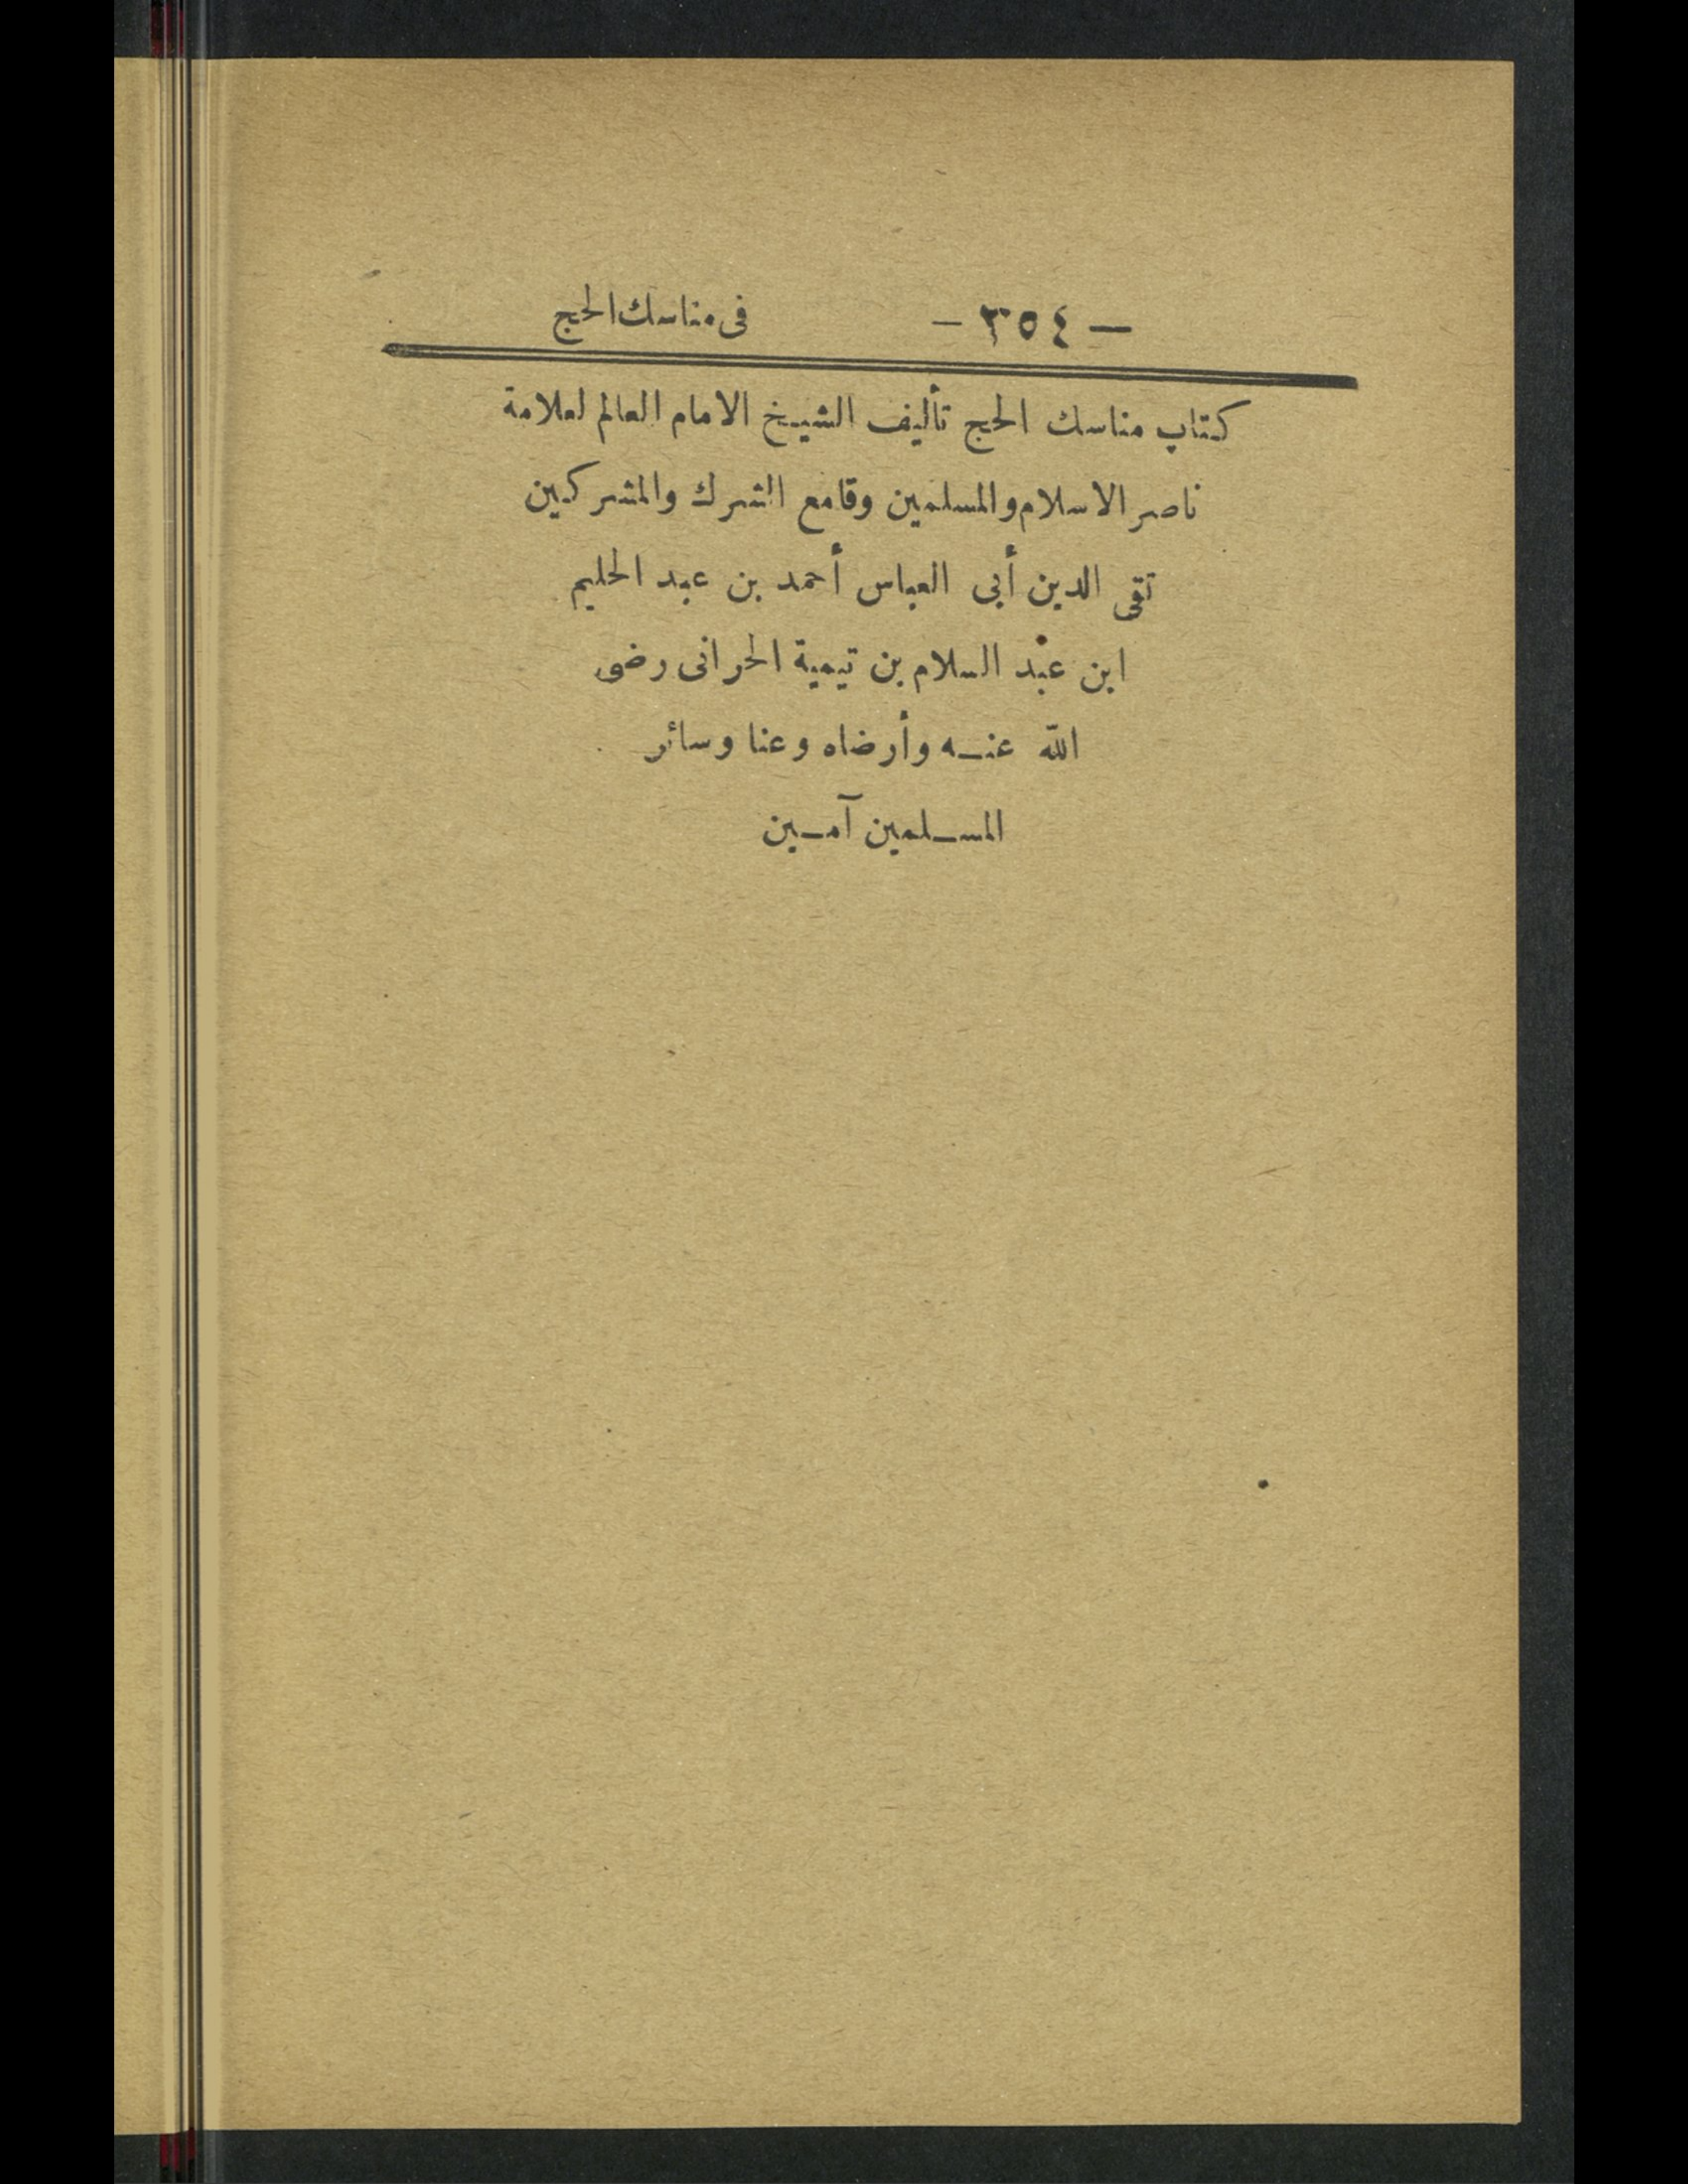 — ٣٥٤ — فى مناسك الحج
كتاب مناسك الحج تأليف الشيخ الامام العالم لعلامة
ناصر الاسلام والمسلمين وقامع الشرك والمشركين
تقى الدين أبى العباس أحمد بن عبد الحليم
ابن عبد السلام بن تيمية الحرانى رضى
الله عنه وأرضاه وعنا وسائر
المسلمين آمين